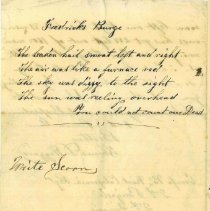 Fredricks Burge
The leaden hail swept left and right
The air was like a furnace red
The sky was dizzy to the sight
The sun was reeling overhead
You could not count our Dead
Write Soon